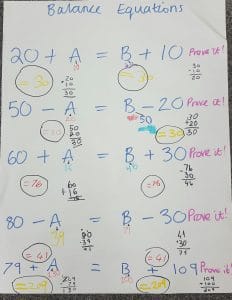 Balance Equations
20 + A = B + 10 Prove it!
10 20
= 30 20 + 10 30 = 30 30 - 10 20
50 - A = B - 20 Prove it!
50
50 20 30 = 30 30 + 20 50
60 + A = B + 30 Prove it!
= 76 60 + 16 76 = 76 - 76 30 46
80 - A = B - 30 Prove it!
39 71
= 41 80 - 39 41 = 41 41 + 30 71
79 + A = B + 109 Prove it!
= 209 = 209 109 + 100 209